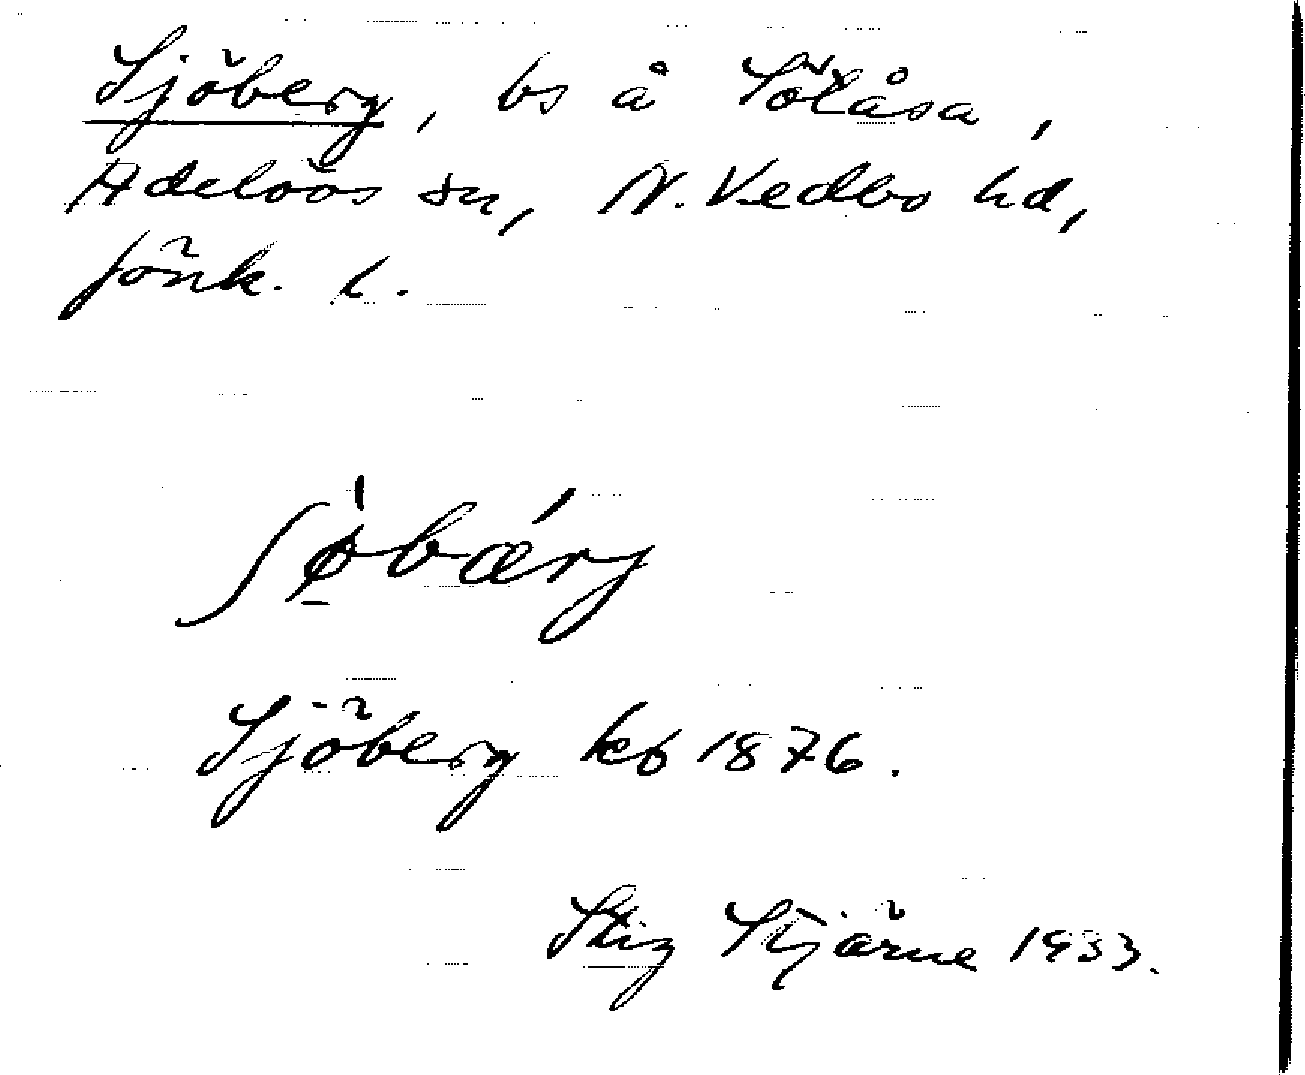 Sjöberg, bs å Sötåsa,
Adelövs sn, N. Vedbo hd,
Jönk. l.
ʃø̱̍bǽrj
Sjöberg kb 1876.
Stig Stjärne 1933.